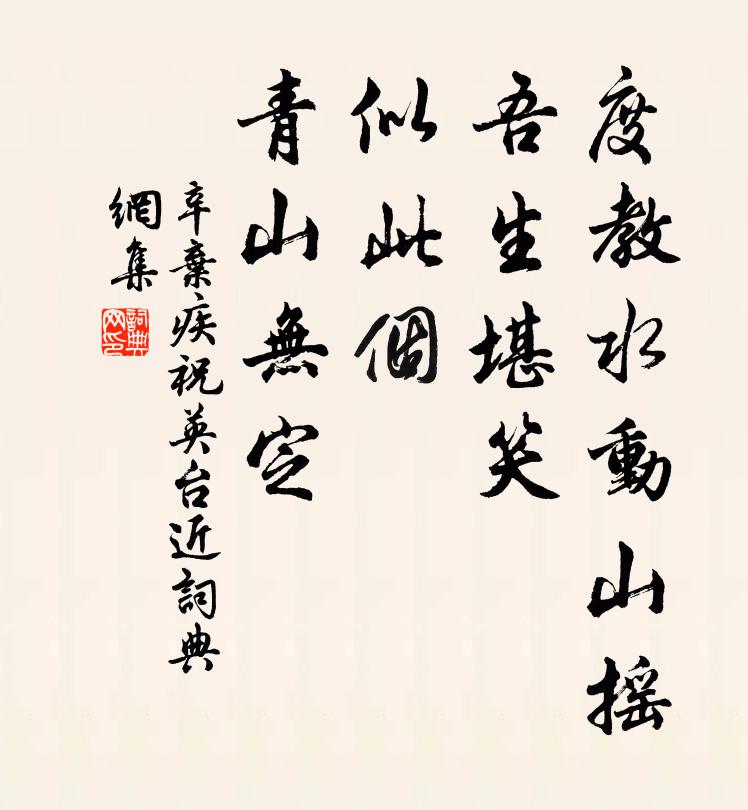 度教水動山搖
吾生堪笑
似此個
青山無定
辛棄疾祝英台近詞典
網集
詞典
网印